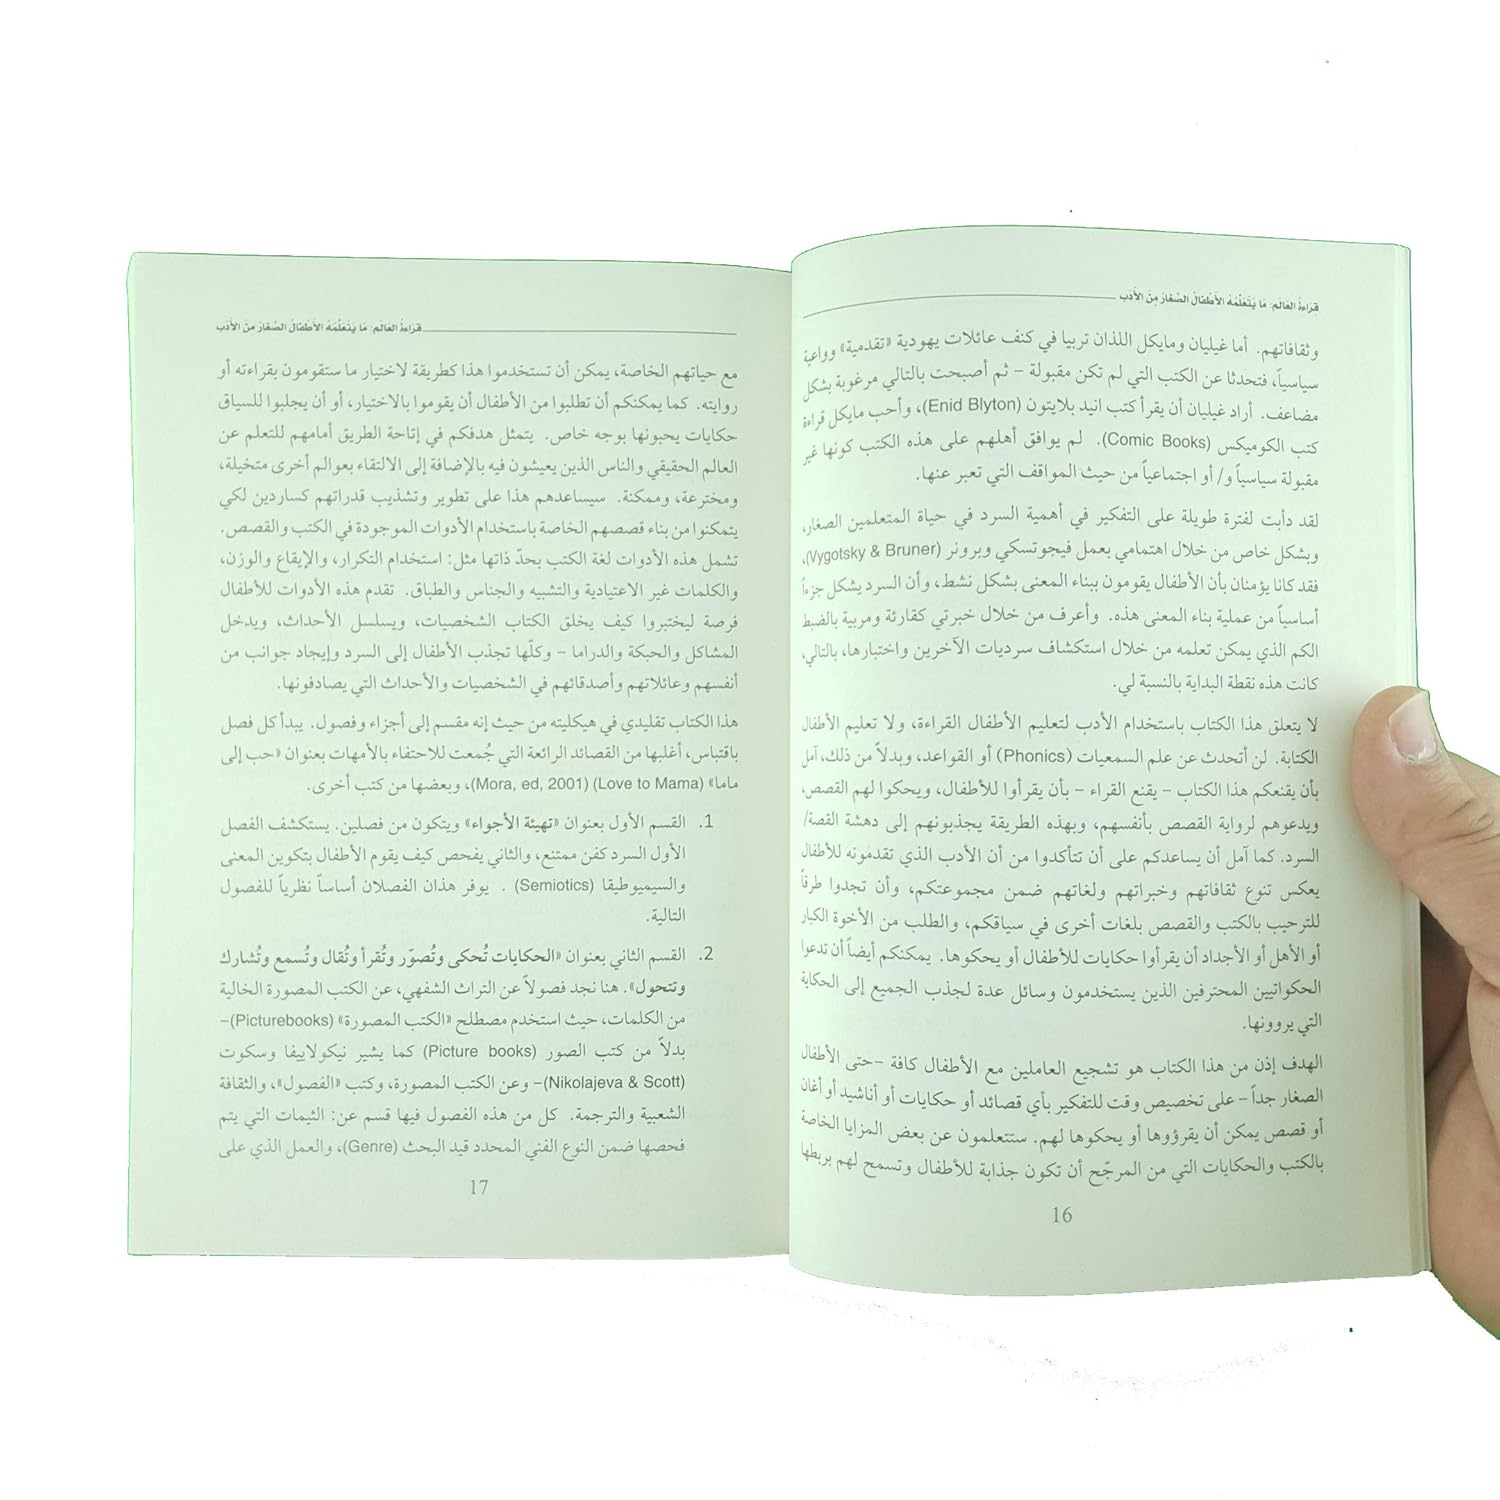 قراءة العالم: ما يتعلمه الأطفال الصغار من الأدب
وثقافاتهم. أما غيليان ومايكل اللذان تربيا في كنف عائلات يهودية «تقدمية» وواعية
سياسياً، فتحدثا عن الكتب التي لم تكن مقبولة – ثم أصبحت بالتالي مرغوبة بشكل
مضاعف. أراد غيليان أن يقرأ كتب انيد بلايتون (Enid Blyton)، وأحب مايكل قراءة
كتب الكوميكس (Comic Books). لم يوافق أهلهم على هذه الكتب كونها غير
مقبولة سياسياً و/ أو اجتماعياً من حيث المواقف التي تعبر عنها.
لقد دأبت لفترة طويلة على التفكير في أهمية السرد في حياة المتعلمين الصغار،
وبشكل خاص من خلال اهتمامي بعمل فيجوتسكي وبرونر (Vygotsky & Bruner)،
فقد كانا يؤمنان بأن الأطفال يقومون ببناء المعنى بشكل نشط، وأن السرد يشكل جزءاً
أساسياً من عملية بناء المعنى هذه. وأعرف من خلال خبرتي كقارئة ومربية بالضبط
الكم الذي يمكن تعلمه من خلال استكشاف سرديات الآخرين واختبارها، بالتالي،
كانت هذه نقطة البداية بالنسبة لي.
لا يتعلق هذا الكتاب باستخدام الأدب لتعليم الأطفال القراءة، ولا تعليم الأطفال
الكتابة. لن أتحدث عن علم السمعيات (Phonics) أو القواعد، وبدلاً من ذلك، آمل
بأن يقنعكم هذا الكتاب – يقنع القراء – بأن يقرأوا للأطفال، ويحكوا لهم القصص،
ويدعوهم لرواية القصص بأنفسهم، وبهذه الطريقة يجذبونهم إلى دهشة القصة/
السرد. كما آمل أن يساعدكم على أن تتأكدوا من أن الأدب الذي تقدمونه للأطفال
يعكس تنوع ثقافاتهم وخبراتهم ولغاتهم ضمن مجموعتكم، وأن تجدوا طرقاً
للترحيب بالكتب والقصص بلغات أخرى في سياقكم، والطلب من الأخوة الكبار
أو الأهل أو الأجداد أن يقرأوا حكايات للأطفال أو يحكوها. يمكنكم أيضاً أن تدعوا
الحكواتيين المحترفين الذين يستخدمون وسائل عدة لجذب الجميع إلى الحكاية
التي يروونها.
الهدف إذن من هذا الكتاب هو تشجيع العاملين مع الأطفال كافة –حتى الأطفال
الصغار جداً – على تخصيص وقت للتفكير بأي قصائد أو حكايات أو أناشيد أو أغان
أو قصص يمكن أن يقرؤوها أو يحكوها لهم. ستتعلمون عن بعض المزايا الخاصة
بالكتب والحكايات التي من المرجّح أن تكون جذابة للأطفال وتسمح لهم بربطها
16
قراءة العالم: ما يتعلمه الأطفال الصغار من الأدب
مع حياتهم الخاصة، يمكن أن تستخدموا هذا كطريقة لاختيار ما ستقومون بقراءته أو
روايته. كما يمكنكم أن تطلبوا من الأطفال أن يقوموا بالاختيار، أو أن يجلبوا للسياق
حكايات يحبونها بوجه خاص. يتمثل هدفكم في إتاحة الطريق أمامهم للتعلم عن
العالم الحقيقي والناس الذين يعيشون فيه بالإضافة إلى الالتقاء بعوالم أخرى متخيلة،
ومخترعة، وممكنة. سيساعدهم هذا على تطوير وتشذيب قدراتهم كساردين لكي
يتمكنوا من بناء قصصهم الخاصة باستخدام الأدوات الموجودة في الكتب والقصص.
تشمل هذه الأدوات لغة الكتب بحدّ ذاتها مثل: استخدام التكرار، والإيقاع والوزن،
والكلمات غير الاعتيادية والتشبيه والجناس والطباق. تقدم هذه الأدوات للأطفال
فرصة ليختبروا كيف يخلق الكتاب الشخصيات، ويسلسل الأحداث، ويدخل
المشاكل والحبكة والدراما – وكلّها تجذب الأطفال إلى السرد وإيجاد جوانب من
أنفسهم وعائلاتهم وأصدقائهم في الشخصيات والأحداث التي يصادفونها.
هذا الكتاب تقليدي في هيكليته من حيث إنه مقسم إلى أجزاء وفصول. يبدأ كل فصل
باقتباس، أغلبها من القصائد الرائعة التي جُمعت للاحتفاء بالأمهات بعنوان «حب إلى
ماما» (Love to Mama) (Mora, ed, 2001)، وبعضها من كتب أخرى.
1. القسم الأول بعنوان «تهيئة الأجواء» ويتكون من فصلين. يستكشف الفصل
الأول السرد كفن ممتنع، والثاني يفحص كيف يقوم الأطفال بتكوين المعنى
والسيميوطيقا (Semiotics) . يوفر هذان الفصلان أساساً نظرياً للفصول
التالية.
2. القسم الثاني بعنوان «الحكايات تُحكى وتُصوّر وتُقرأ وتُقال وتُسمع وتُشارك
وتتحول». هنا نجد فصولاً عن التراث الشفهي، عن الكتب المصورة الخالية
من الكلمات، حيث استخدم مصطلح «الكتب المصورة» (Picturebooks)–
بدلاً من كتب الصور (Picture books) كما يشير نيكولاييفا وسكوت
(Nikolajeva & Scott)– وعن الكتب المصورة، وكتب «الفصول»، والثقافة
الشعبية والترجمة. كل من هذه الفصول فيها قسم عن: الثيمات التي يتم
فحصها ضمن النوع الفني المحدد قيد البحث (Genre)، والعمل الذي على
17